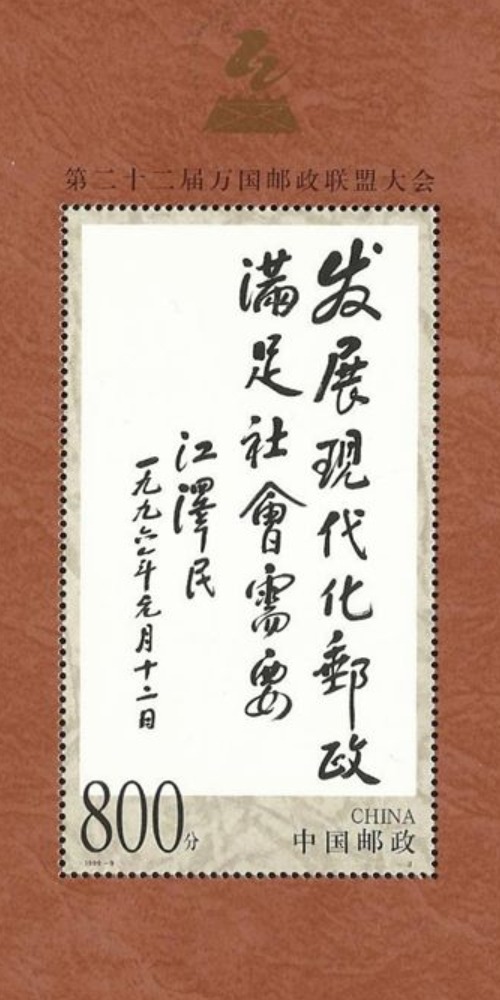 第二十二届万国邮政联盟大会
发展现代化郵政
满足社會需要
江澤民
一九九六年元月十二日
800分
CHINA
中国邮政
1999-9
J